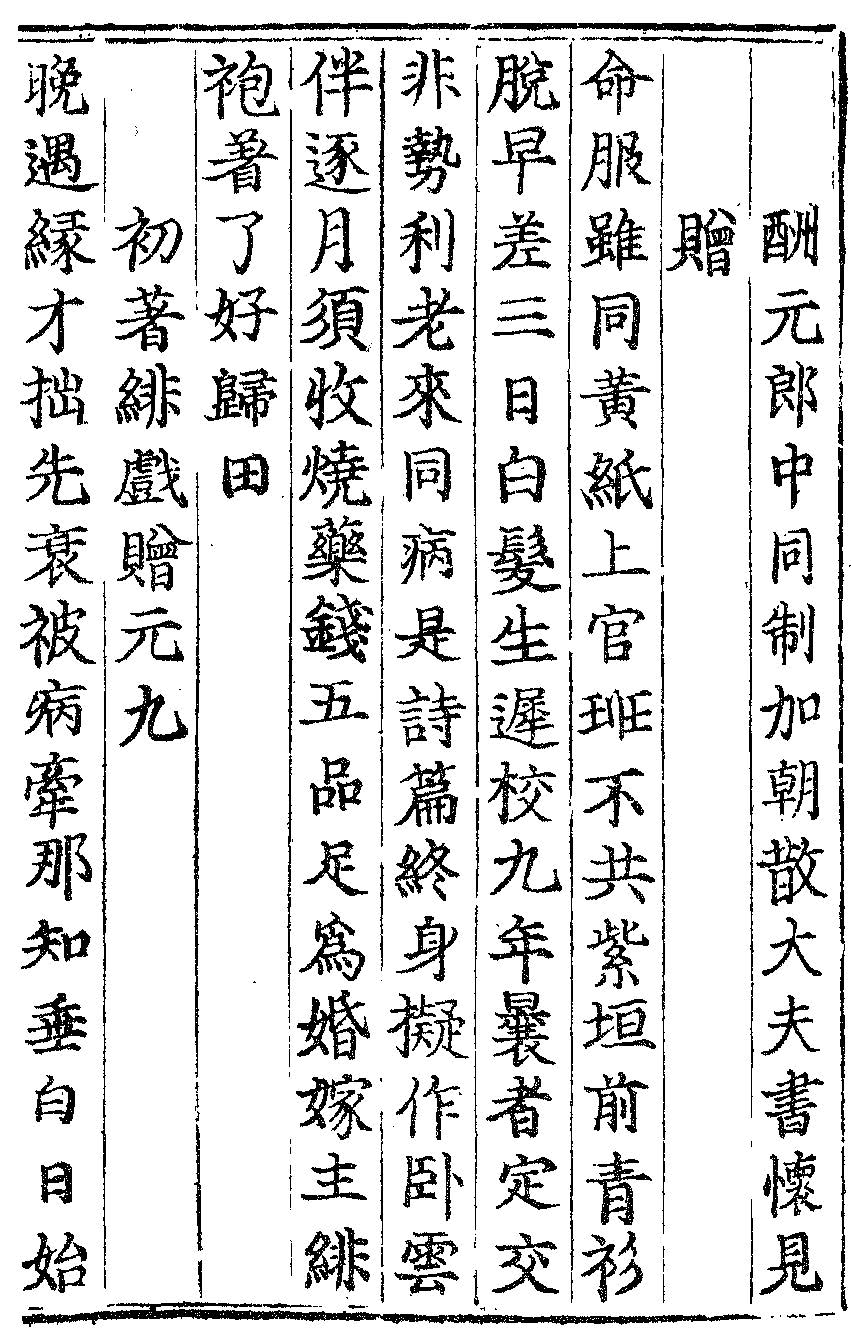 酬元郎中同制加朝散大夫書懷見
贈
命服雖同黃紙上官班不共紫垣前青衫
脫早差三日白髮生遲校九年曩者定交
非勢利老來同病是詩篇終身擬作卧雲
伴逐月須收燒藥錢五品足爲婚嫁主緋
袍著了好歸田
初著緋戲贈元九
晚遇緣才拙先衰被病牽那知垂白日始